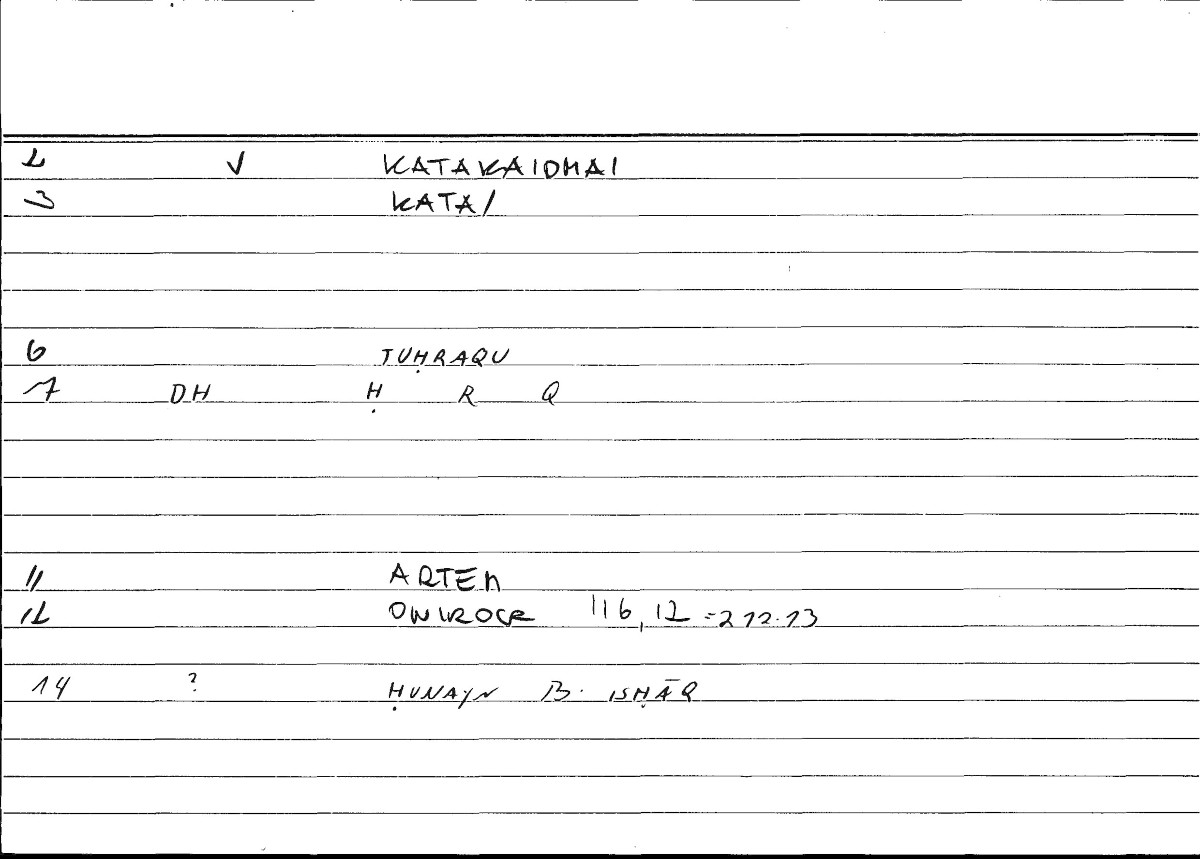 2 V KATAKAIOMAI
3 KATA/
6 TUḤRAQU
7 DH Ḥ R Q
11 ARTEM
12 ONIROCR 116,12 =212.13
14 ? ḤUNAYN B. ISḤĀQ